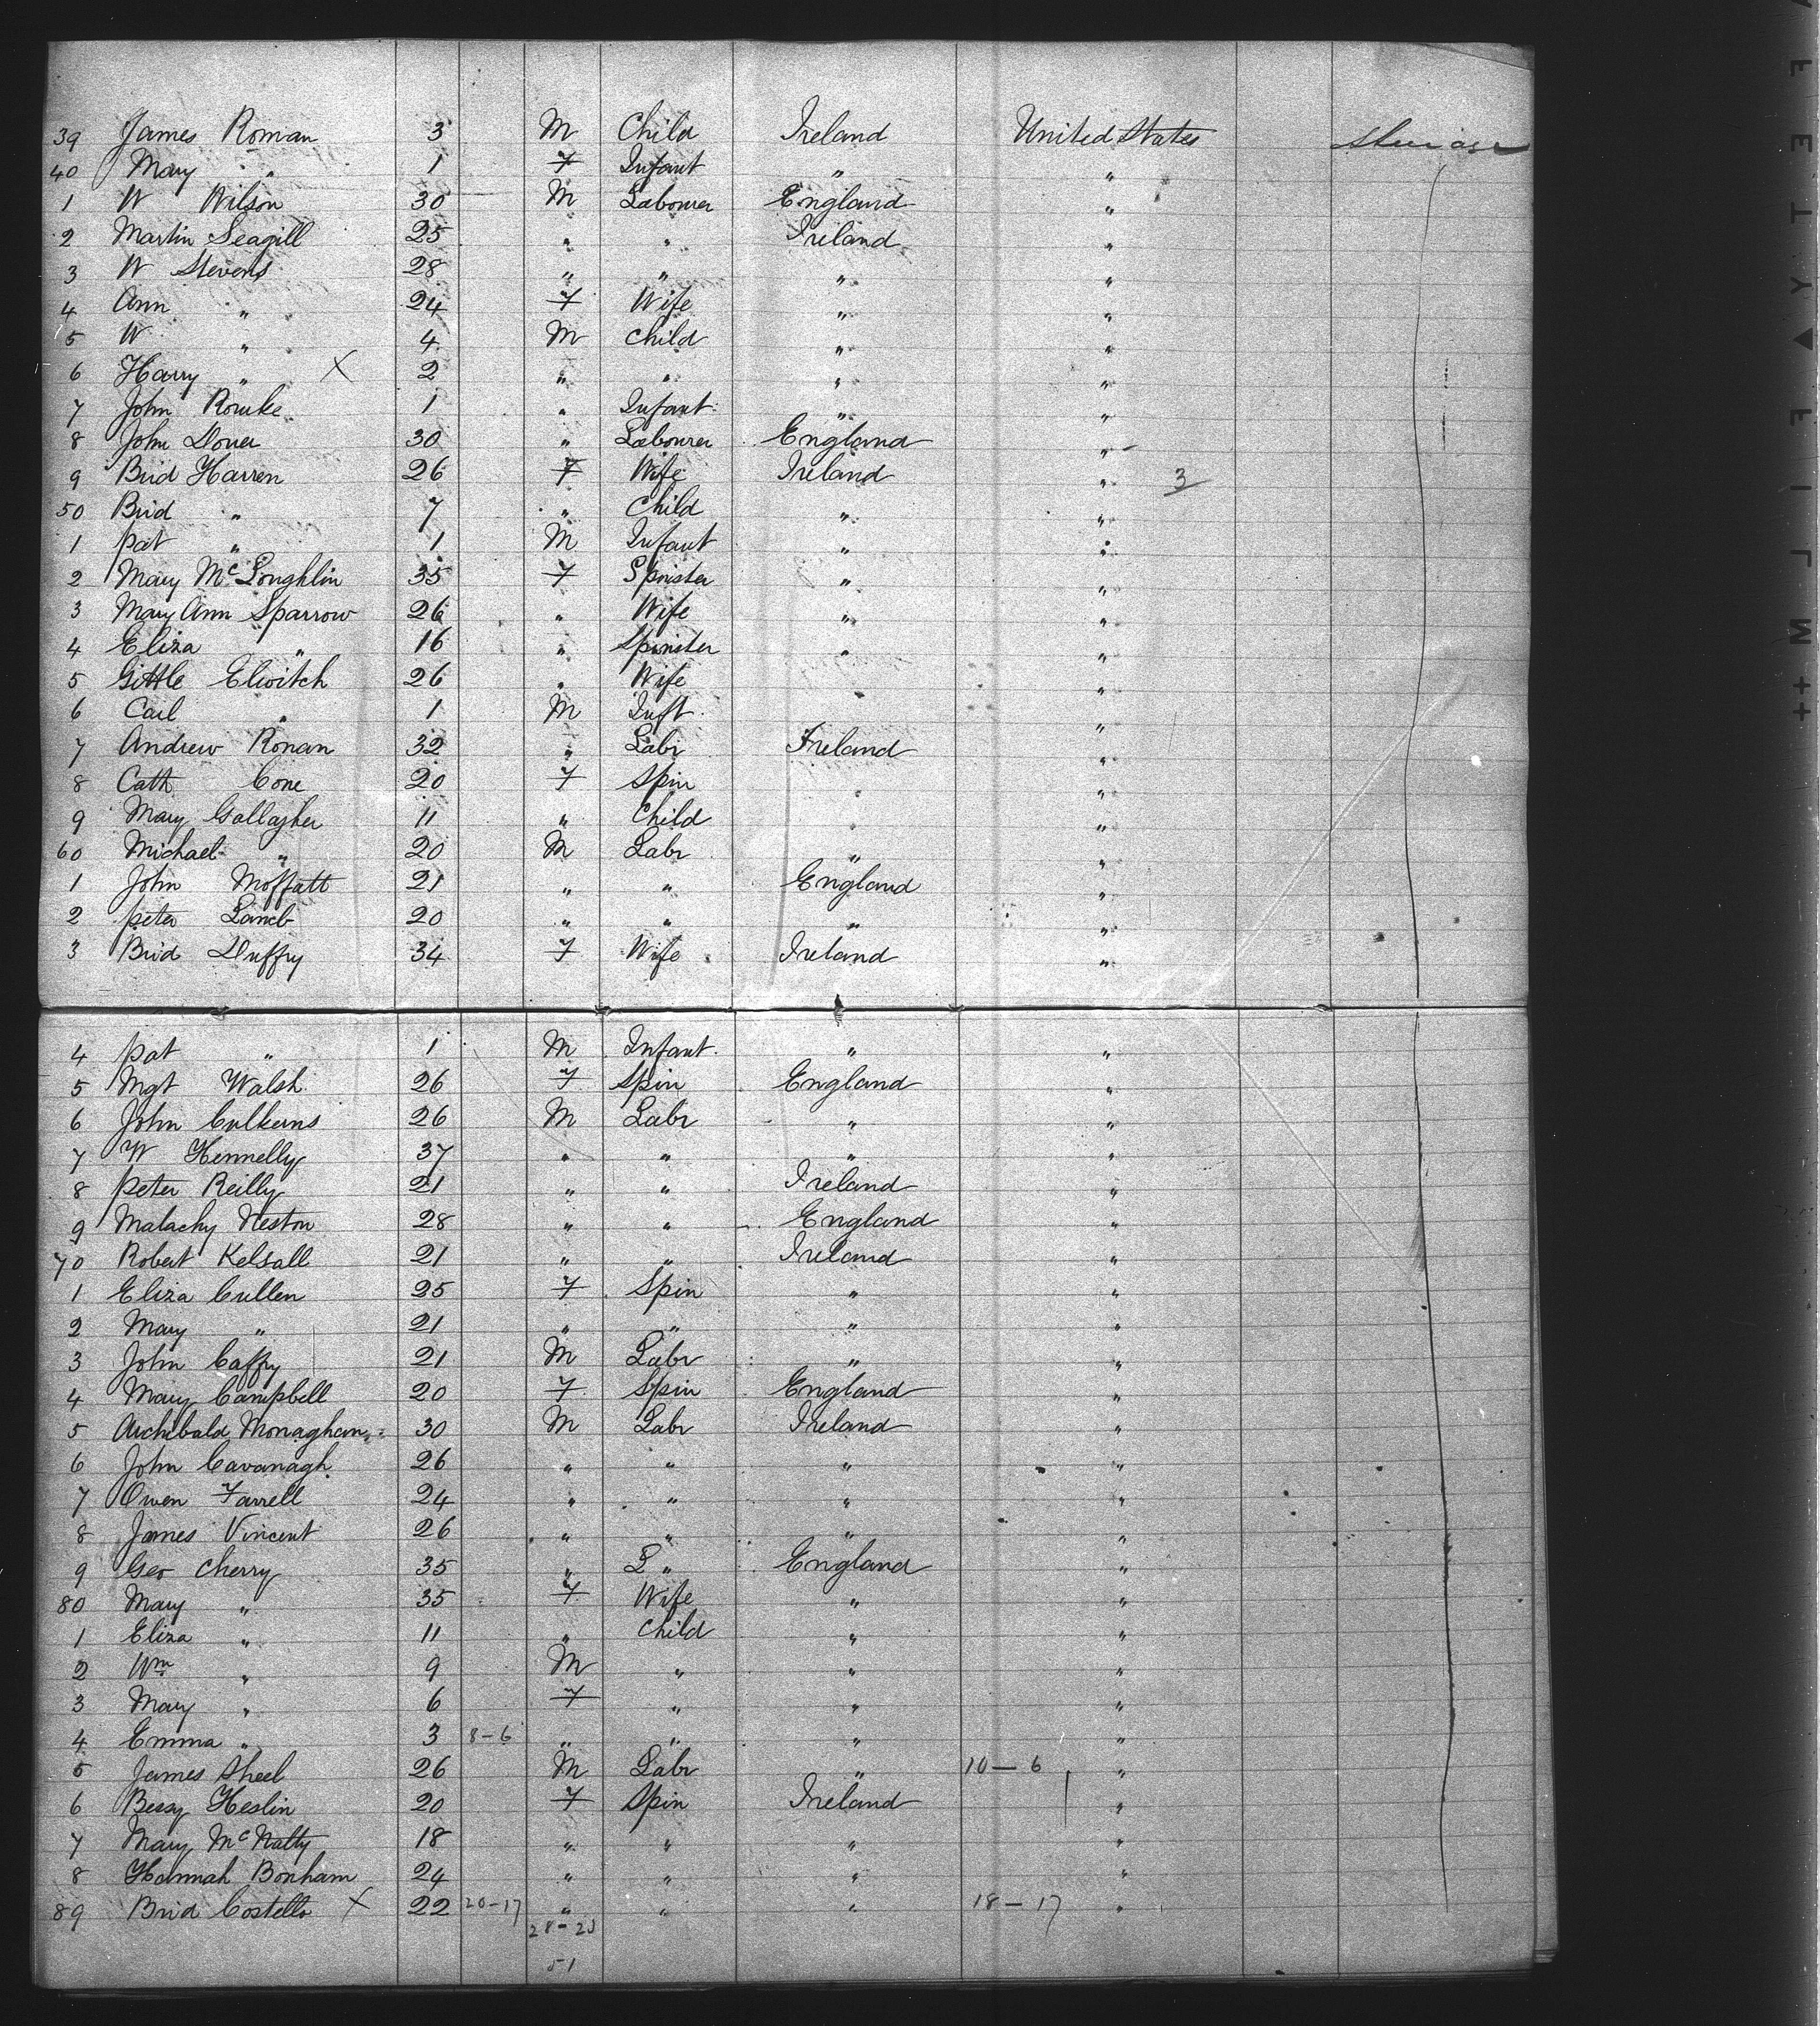 39 James Roman 3 M Child Ireland United States Steerage
40 Mary " 1 F Infant " "
1 W Wilson 30 M Labourer England "
2 Martin Seagill 25 " " Ireland "
3 W Stevens 28 " " " "
4 Ann " 24 F Wife " "
5 W " 4 M Child " "
6 Harry " X 2 " " " "
7 John Rourke 1 " Infant " "
8 John Dover 30 " Labourer England "
9 Brid Harren 26 F Wife Ireland " 3
50 Brid " 7 " Child " "
1 Pat " 1 M Infant " "
2 Mary McLoughlin 35 F Spinster " "
3 Mary Ann Sparrow 26 " Wife " "
4 Eliza " 16 " Spinster " "
5 Gittle Elwitch 26 " Wife "
6 Carl " 1 M Inft "
7 Andrew Ronan 32 " Labr Ireland "
8 Cath Cone 20 F Spin " "
9 Mary Gallagher 11 " Child " "
60 Michael " 20 M Labr " "
1 John Moffatt 21 " " England "
2 Peter Lamb 20 " " " "
3 Brid Duffry 34 F Wife Ireland "
4 Pat " 1 M Infant " "
5 Mgt Walsh 26 F Spin England "
6 John Culkeens 26 M Labr " "
7 W Kennelly 37 " " " "
8 Peter Reilly 21 " " Ireland "
9 Malachy Neston 28 " " England "
70 Robert Kelsall 21 " " Ireland "
1 Eliza Cullen 25 F Spin " "
2 Mary " 21 " " " "
3 John Caffry 21 M Labr " "
4 Mary Campbell 20 F Spin England "
5 Archibald Monaghan 30 M Labr Ireland "
6 John Cavanagh 26 " " " "
7 Owen Farrell 24 " " " "
8 James Vincent 26 " " " "
9 Geo Cherry 35 " L " England "
80 Mary " 35 F Wife " "
1 Eliza " 11 " Child " "
2 Wm " 9 M " " "
3 Mary " 6 F " " "
4 Emma " 3 8-6 " " " "
5 James Sheel 26 M Labr " 10-6 "
6 Bessy Heslin 20 F Spin Ireland "
7 Mary McNatty 18 " " " "
8 Hannah Bonham 24 " " " "
89 Brid Costello X 22 20-17 " " " 18-17 "
28-23
51